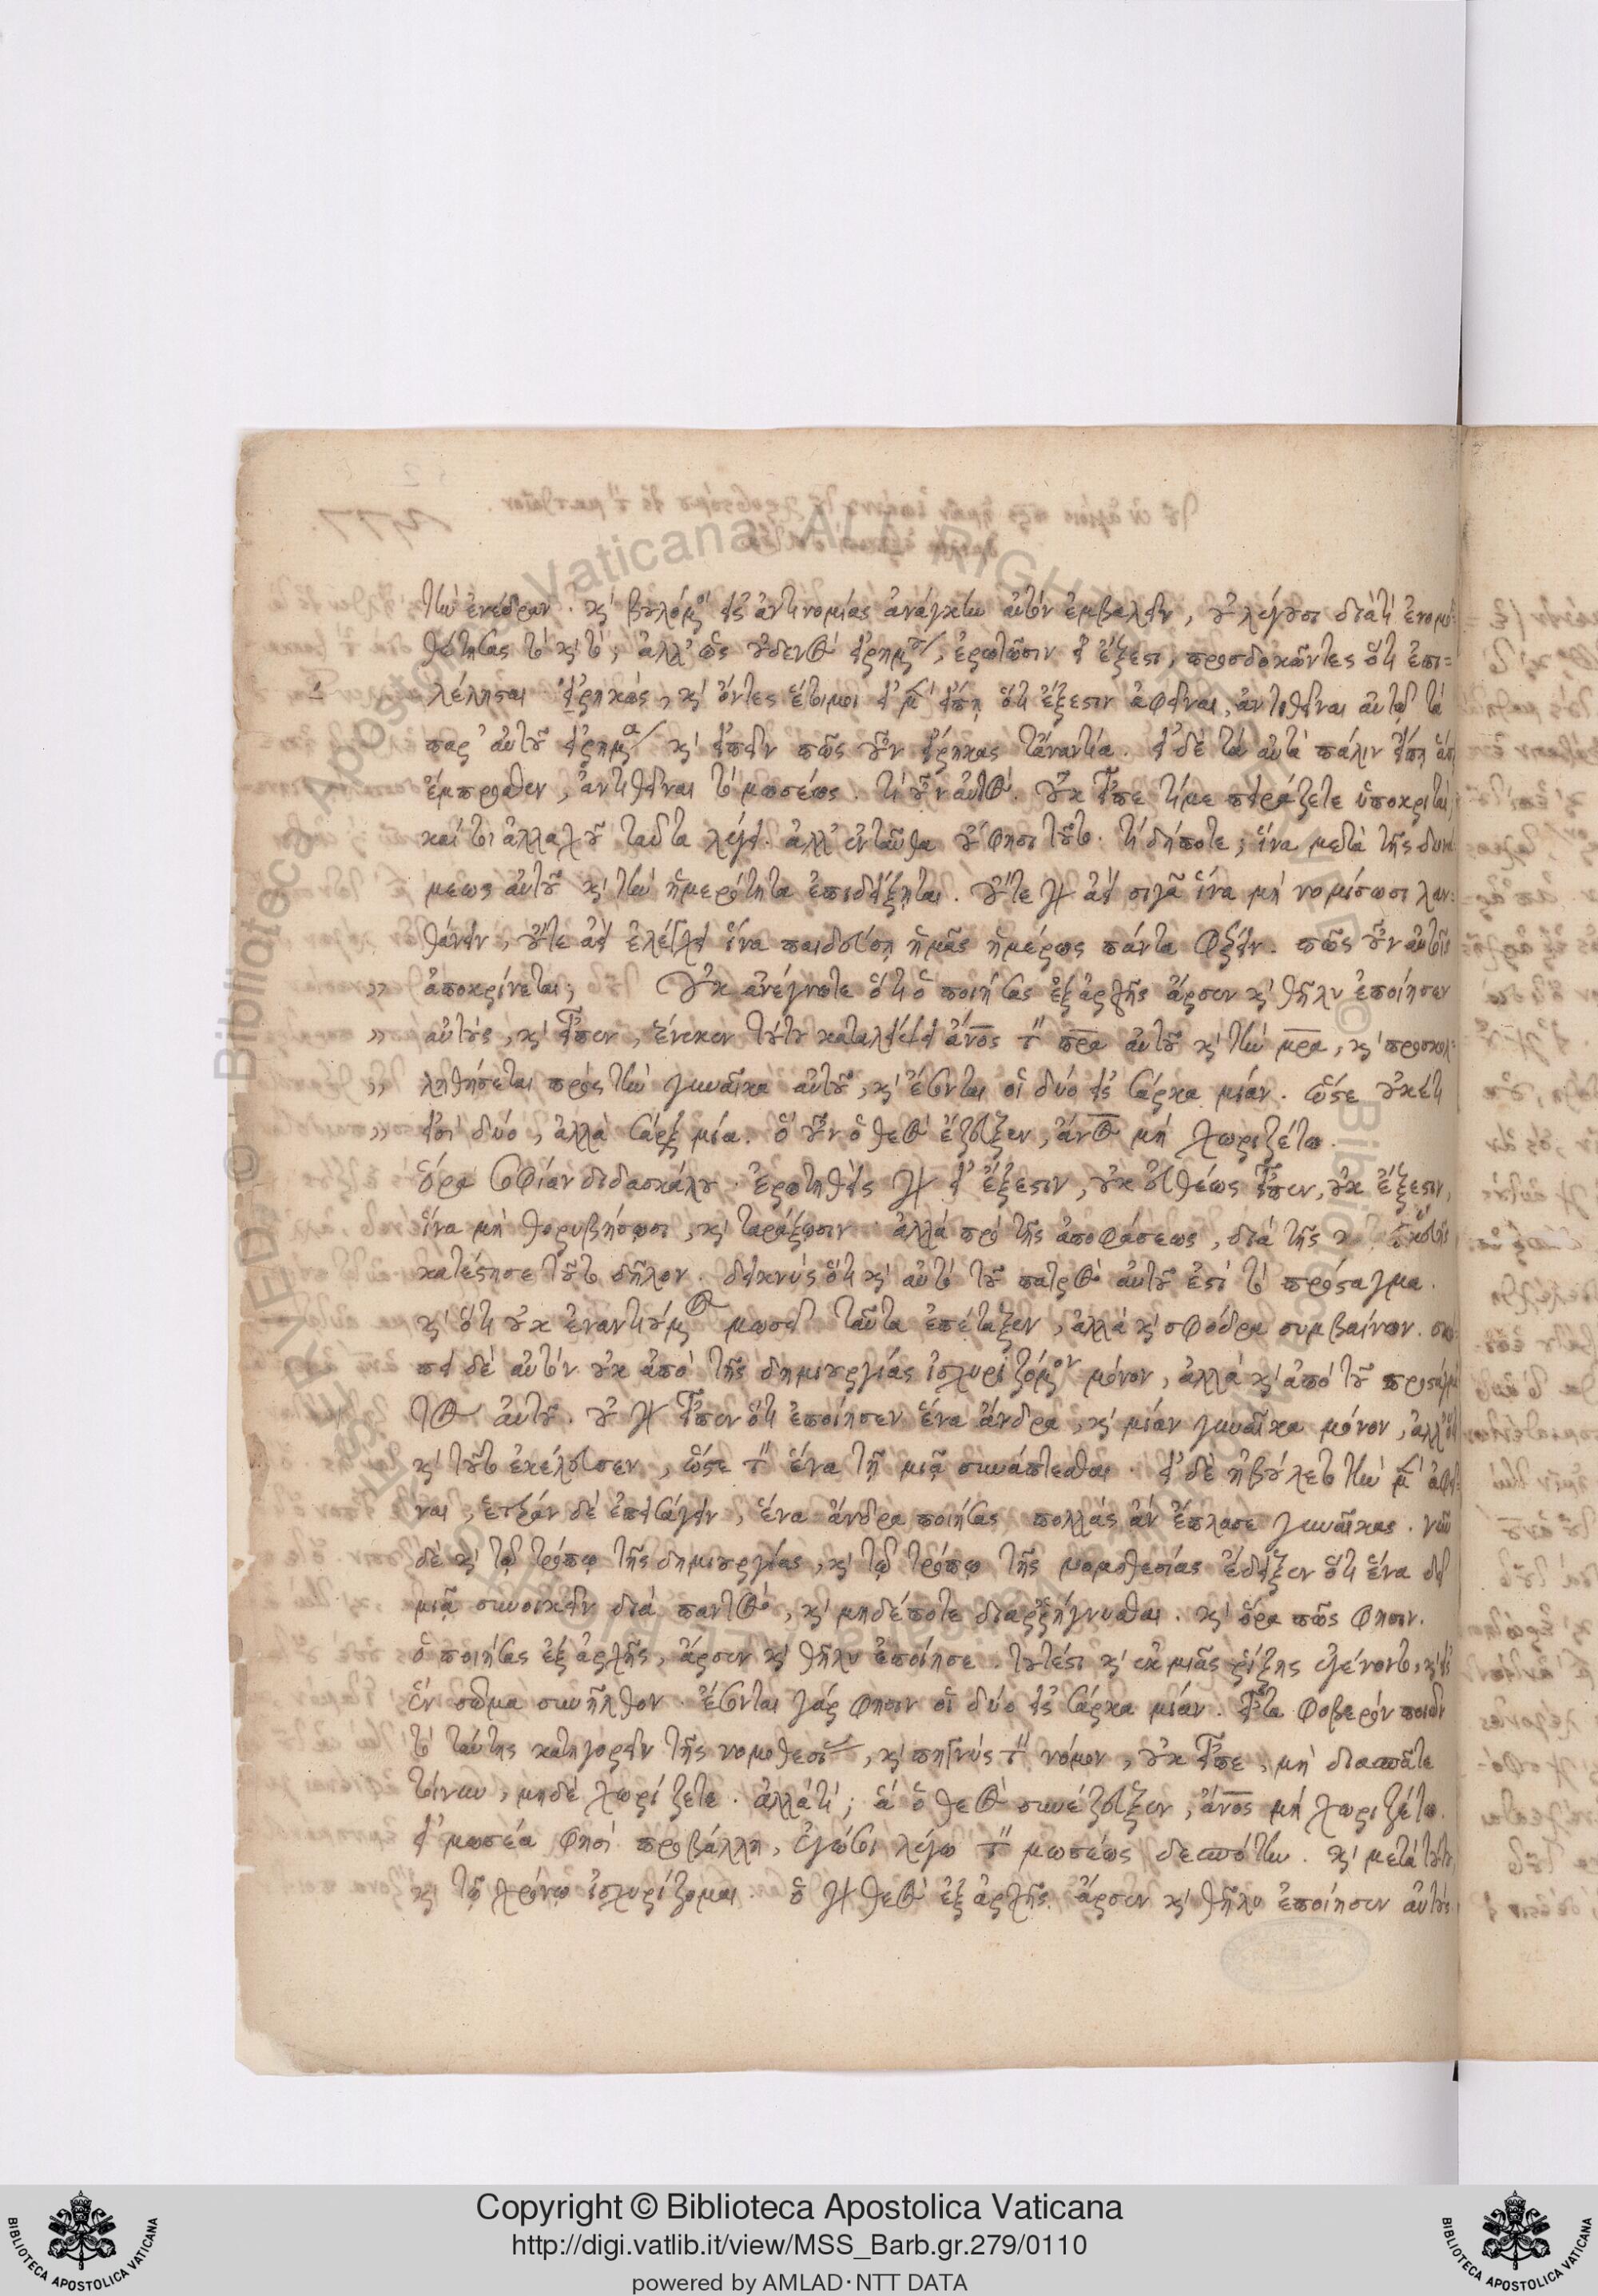 τὴν ἐνέδραν. κ̀ βουλόμενοι εἰς ἀντινομίας ἀνάγκην αὐτὸν ἐμβαλεῖν, οὐ λέγουσι διατί ἐνομο
θέτησας τὸ κ̀ τό; ἀλλ' ὡς οὐδενὸς εἰρημένου, ἐρωτῶσιν εἰ ἔξεστι, προσδοκῶντες ὅτι ἐπι=
λέλησται εἰρηκώς, κ̀ ὄντες ἕτοιμοι εἰ μὲν εἴπῃ ὅτι ἔξεστιν ἀφεῖναι, ἀντιθεῖναι αὐτῷ τὰ
παρ' αὐτοῦ εἰρημένα κ̀ εἰπεῖν πῶς οὖν εἴρηκας τἀναντία. εἰ δὲ τὰ αὐτὰ πάλιν εἴπῃ ἅπερ
ἔμπροσθεν, ἀντιθεῖναι τὸ μωσέως. τί οὖν αὐτός. οὐκ εἶπε τί με πειράζετε ὑποκριταί,
καίτοι ἀλλαχοῦ ταῦτα λέγει. ἀλλ' ἐνταῦθα οὔ φησι τοῦτο. τί δήποτε; ἵνα μετὰ τῆς δυνά
μεως αὐτοῦ κ̀ τὴν ἡμερότητα ἐπιδείξηται. οὔτε γὰρ ἀεὶ σιγᾷ ἵνα μὴ νομίσωσι λαν=
θάνειν, οὔτε ἀεὶ ἐλέγχει ἵνα παιδεύσῃ ἡμᾶς ἡμέρως πάντα φέρειν. πῶς οὖν αὐτοῖς
" ἀποκρίνεται; Οὐκ ἀνέγνωτε ὅτι ὁ ποιήσας ἐξ ἀρχῆς ἄρσεν κ̀ θῆλυ ἐποίησεν
" αὐτούς, κ̀ εἶπεν, ἕνεκεν τούτου καταλείψει ἄνος τὸν πρα αὐτοῦ κ̀ τὴν μρα, κ̀ προσκολ=
" ληθήσεται πρὸς τὴν γυναῖκα αὐτοῦ, κ̀ ἔσονται οἱ δύο εἰς σάρκα μίαν. ὥστε οὐκέτι
" εἰσὶ δύο, ἀλλὰ σὰρξ μία. ὃ οὖν ὁ θεὸς ἔζευξεν, ἄνος μὴ χωριζέτω.
ὅρα σοφίαν διδασκάλου. ἐρωτηθεὶς γὰρ εἰ ἔξεστιν, οὐκ εὐθέως εἶπεν, οὐκ ἔξεστιν,
ἵνα μὴ θορυβήσωσι, κ̀ ταράξωσιν. ἀλλὰ πρὸ τῆς ἀποφάσεως, διὰ τῆς
κατέστησε τοῦτο δῆλον. δεικνὺς ὅτι κ̀ αὐτὸ τοῦ πατρὸς αὐτοῦ ἐστὶ τὸ πρόσταγμα.
κ̀ ὅτι οὐκ ἐναντιούμενος μωσεῖ ταῦτα ἐπέταξεν, ἀλλὰ κ̀ σφόδρα συμβαίνων. σκό
πει δὲ αὐτὸν οὐκ ἀπὸ τῆς δημιουργίας ἰσχυριζόμενον μόνον, ἀλλὰ κ̀ ἀπὸ τοῦ προστάγμα
τος αὐτοῦ. οὐ γὰρ εἶπεν ὅτι ἐποίησεν ἕνα ἄνδρα, κ̀ μίαν γυναῖκα μόνον, ἀλλ' ὅτι
κ̀ τοῦτο ἐκέλευσεν, ὥστε τὸν ἕνα τῇ μιᾷ συνάπτεσθαι. εἰ δὲ ἠβούλετο τὴν μὲν ἀφι=
έναι, ἑτέραν δὲ ἐπεισάγειν, ἕνα ἄνδρα ποιήσας πολλὰς ἂν ἔπλασε γυναῖκας. νῦν
δὲ κ̀ τῷ τρόπῳ τῆς δημιουργίας, κ̀ τῷ τρόπῳ τῆς νομοθεσίας ἔδειξεν ὅτι ἕνα δεῖ
μιᾷ συνοικεῖν διὰ παντός, κ̀ μηδέποτε διαρρήγνυσθαι. κ̀ ὅρα πῶς φησιν.
ὁ ποιήσας ἐξ ἀρχῆς, ἄρσεν κ̀ θῆλυ ἐποίησε. τουτέστι κ̀ ἐκ μιᾶς ῥίζης ἐγένοντο, κ̀ εἰς
ἓν σῶμα συνῆλθον. ἔσονται γάρ φησιν οἱ δύο εἰς σάρκα μίαν. εἶτα φοβερὸν ποιῶν
τὸ ταύτης κατηγορεῖν τῆς νομοθεσίας, κ̀ πηγνὺς τὸν νόμον, οὐκ εἶπε, μὴ διασπᾶτε
τοίνυν, μηδὲ χωρίζετε. ἀλλὰ τί; ἃ ὁ θεὸς συνέζευξεν, ἄνος μὴ χωριζέτω.
εἰ μωσέα φησὶ προβάλλῃ, ἐγώ σοι λέγω τὸν μωσέως δεσπότην. κ̀ μετὰ τούτου
κ̀ τῷ χρόνῳ ἰσχυρίζομαι. ὁ γὰρ θεὸς ἐξ ἀρχῆς ἄρσεν κ̀ θῆλυ ἐποίησεν αὐτούς
Copyright © Biblioteca Apostolica Vaticana
http://digi.vatlib.it/view/MSS_Barb.gr.279/0110
powered by AMLAD·NTT DATA
BIBLIOTECA APOSTOLICA VATICANA
BIBLIOTECA APOSTOLICA VATICANA